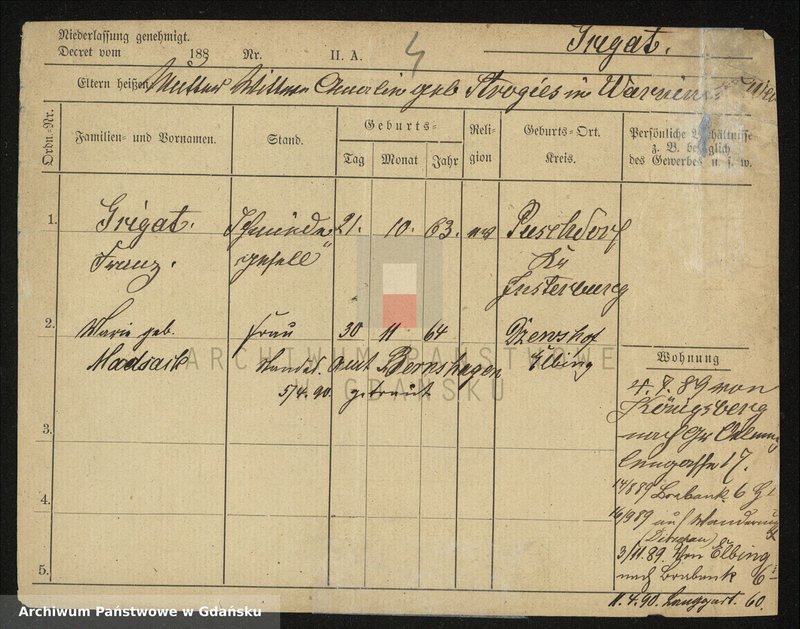 Niederlassung genehmigt.
Decret vom 188 Nr. II. A. 4 Grigat.
Eltern heißen Mutter Wittwe Amalie geb Strogies in
Ordn.-Nr.
Familien- und Vornamen.
Stand.
Geburts-
Tag Monat Jahr
Religion
Geburts-Ort.
Kreis.
Persönliche Verhältnisse
z. B. bezüglich
des Gewerbes u. s. w.
1. Grigat. Schmiede 21. 10. 63. ev Puschdorf
Franz. gesell" Kr
Insterburg
2. Marie geb. Frau 30 11 64
Madsack Standes Amt Elbing
5/4.90. getraut
3.
4.
5.
Wohnung
4.7.89 von
Königsberg
nach Gr
17.
14/8 89 Brabank 6
16/9 89 auf Wanderung
(Dirschau)
3/11.89. Von Elbing
nach Brabank 6
11.4.90. Langgart. 60.
ARCHIWUM PAŃSTWOWE
W GDAŃSKU
Archiwum Państwowe w Gdańsku